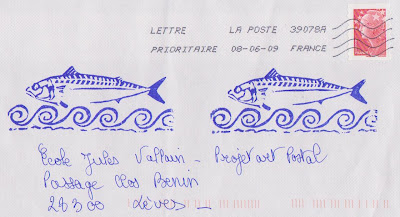 LETTRE LA POSTE 39078A
PRIORITAIRE 08-06-09 FRANCE
École Jules Vallain - Projet art Postal
Passage Clos Benin
28300 Lèves -